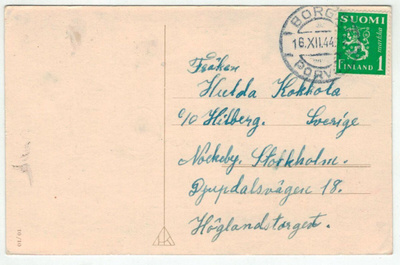 BORG
16.XII.44
PORV
SUOMI
markka
FINLAND 1
Fröken
Hulda Kokkola
c/o Hilberg. Sverige
Nockeby. Stockholm.
Djupdalsvägen 18.
Höglandstorget.